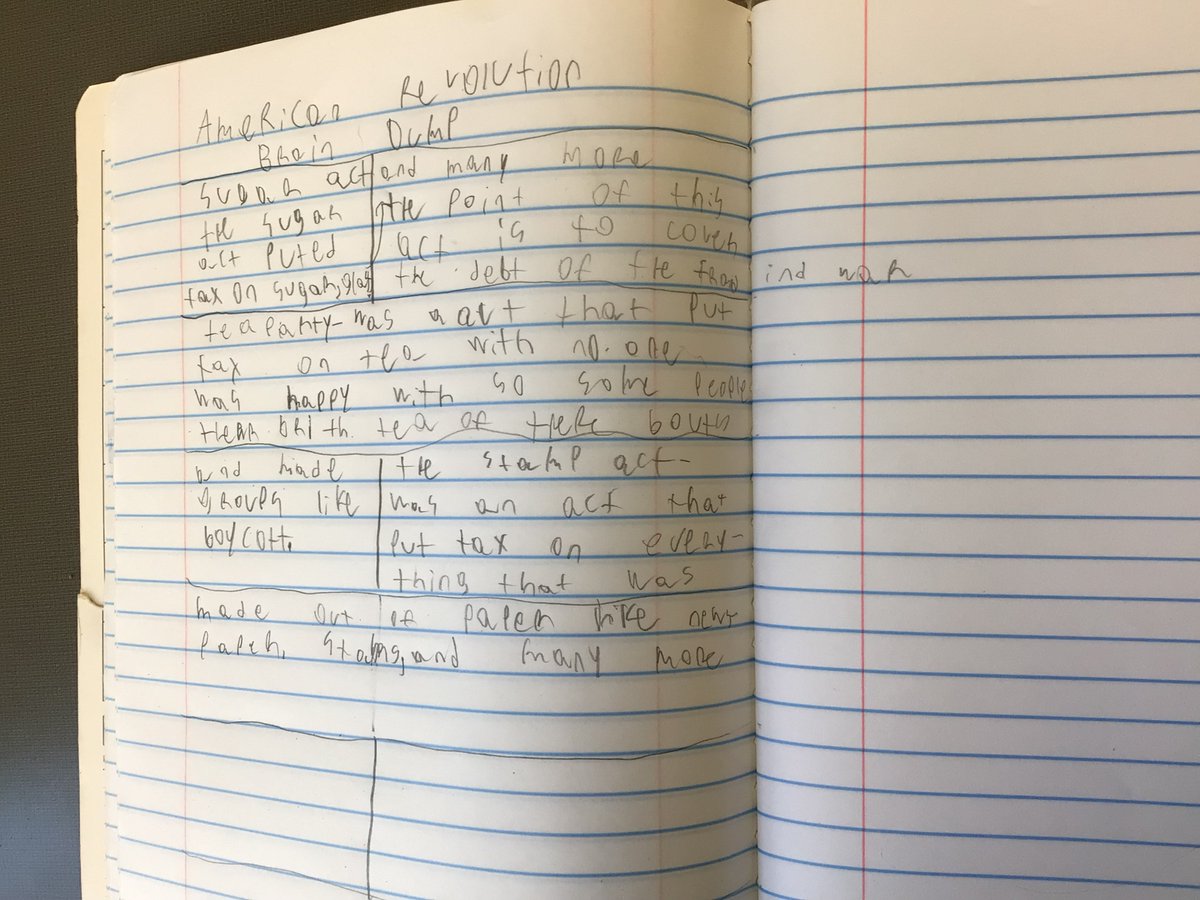 American Revolution
Brain Dump
Sugar act and many more
the sugar the point of this
act puted act is to cover
tax on sugar, glas the debt of the fran ind war
tea party- was a act that put
tax on tea with no one
was happy with so some people
bri th tea of there
and made the stamp act-
groups like was an act that
boycott. put tax on every-
thing that was
made out of paper like news
paper, stamps, and many more